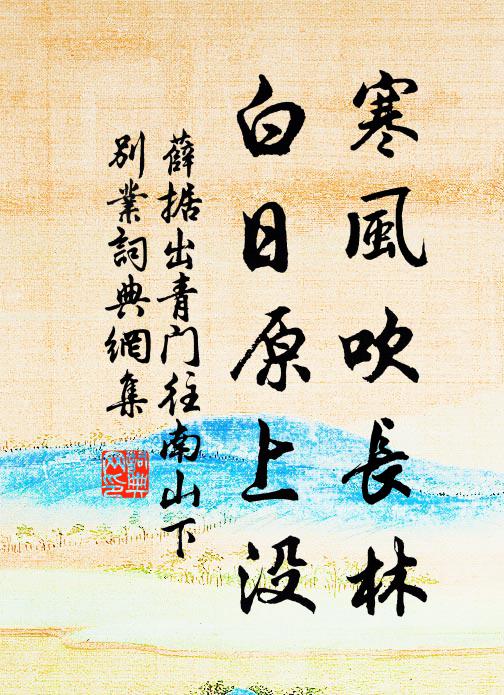 寒風吹長林
白日原上没
薛据出青门往南山下
别業詞典網集